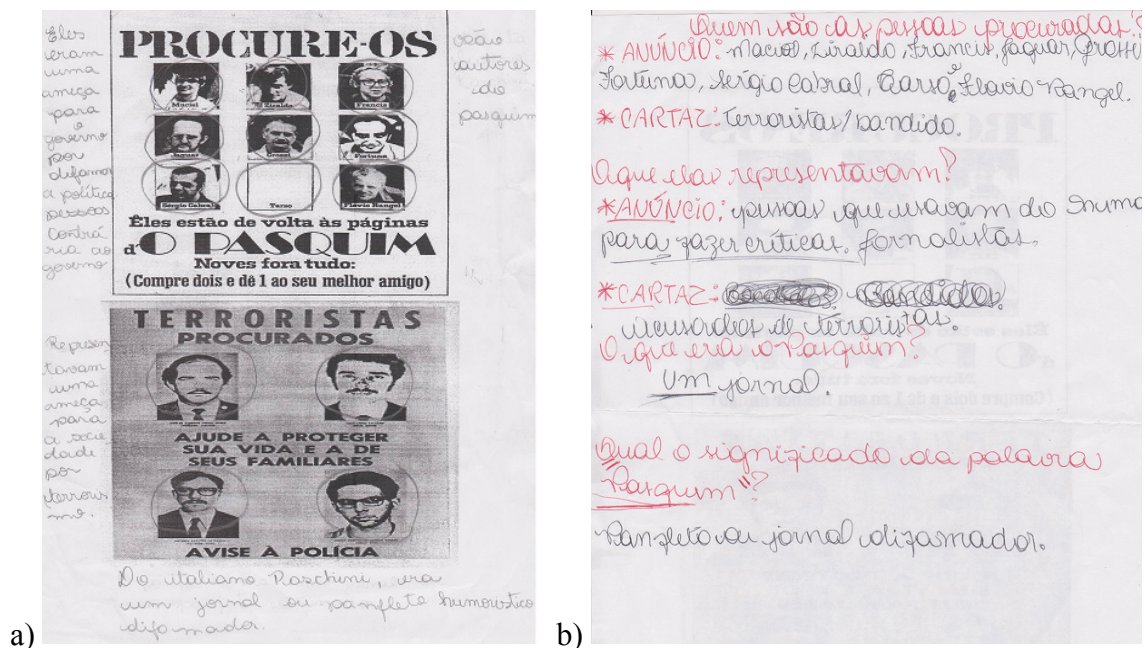 Eles
eram
uma
ameça
para
o
governo
por
difamar
a política
pessoas
contrá
ria ao
governo
PROCURE-OS
Maciel Ziraldo Francis
Jaguar Grossi Fortuna
Sérgio Cabral Tarso Flávio Rangel
Êles estão de volta às páginas
d'O PASQUIM
Noves fora tudo:
(Compre dois e dê 1 ao seu melhor amigo)
autores
do
pasquim
Represen
tavam
uma
ameça
para
a socie
dade
por
terroris
mo.
TERRORISTAS
PROCURADOS
AJUDE A PROTEGER
SUA VIDA E A DE
SEUS FAMILIARES
AVISE À POLÍCIA
Do italiano Paschini, era
um jornal ou panfleto humorístico
difamador.
a)
Quem são as pessoas procuradas?
* ANÚNCIO: Maciel, Ziraldo, Francis, Jaguar, Grossi
Fortuna, Sérgio Cabral, Tarso e Flavio Rangel.
* CARTAZ: Terroristas/bandido.
O que elas representavam?
* ANÚNCIO: pessoas que usavam do humo
para fazer críticas. Jornalistas.
* CARTAZ:
acusados de terroristas.
O que era o Pasquim?
Um jornal.
Qual o significado da palavra
"Pasquim"?
Panfleto ou jornal difamador.
b)